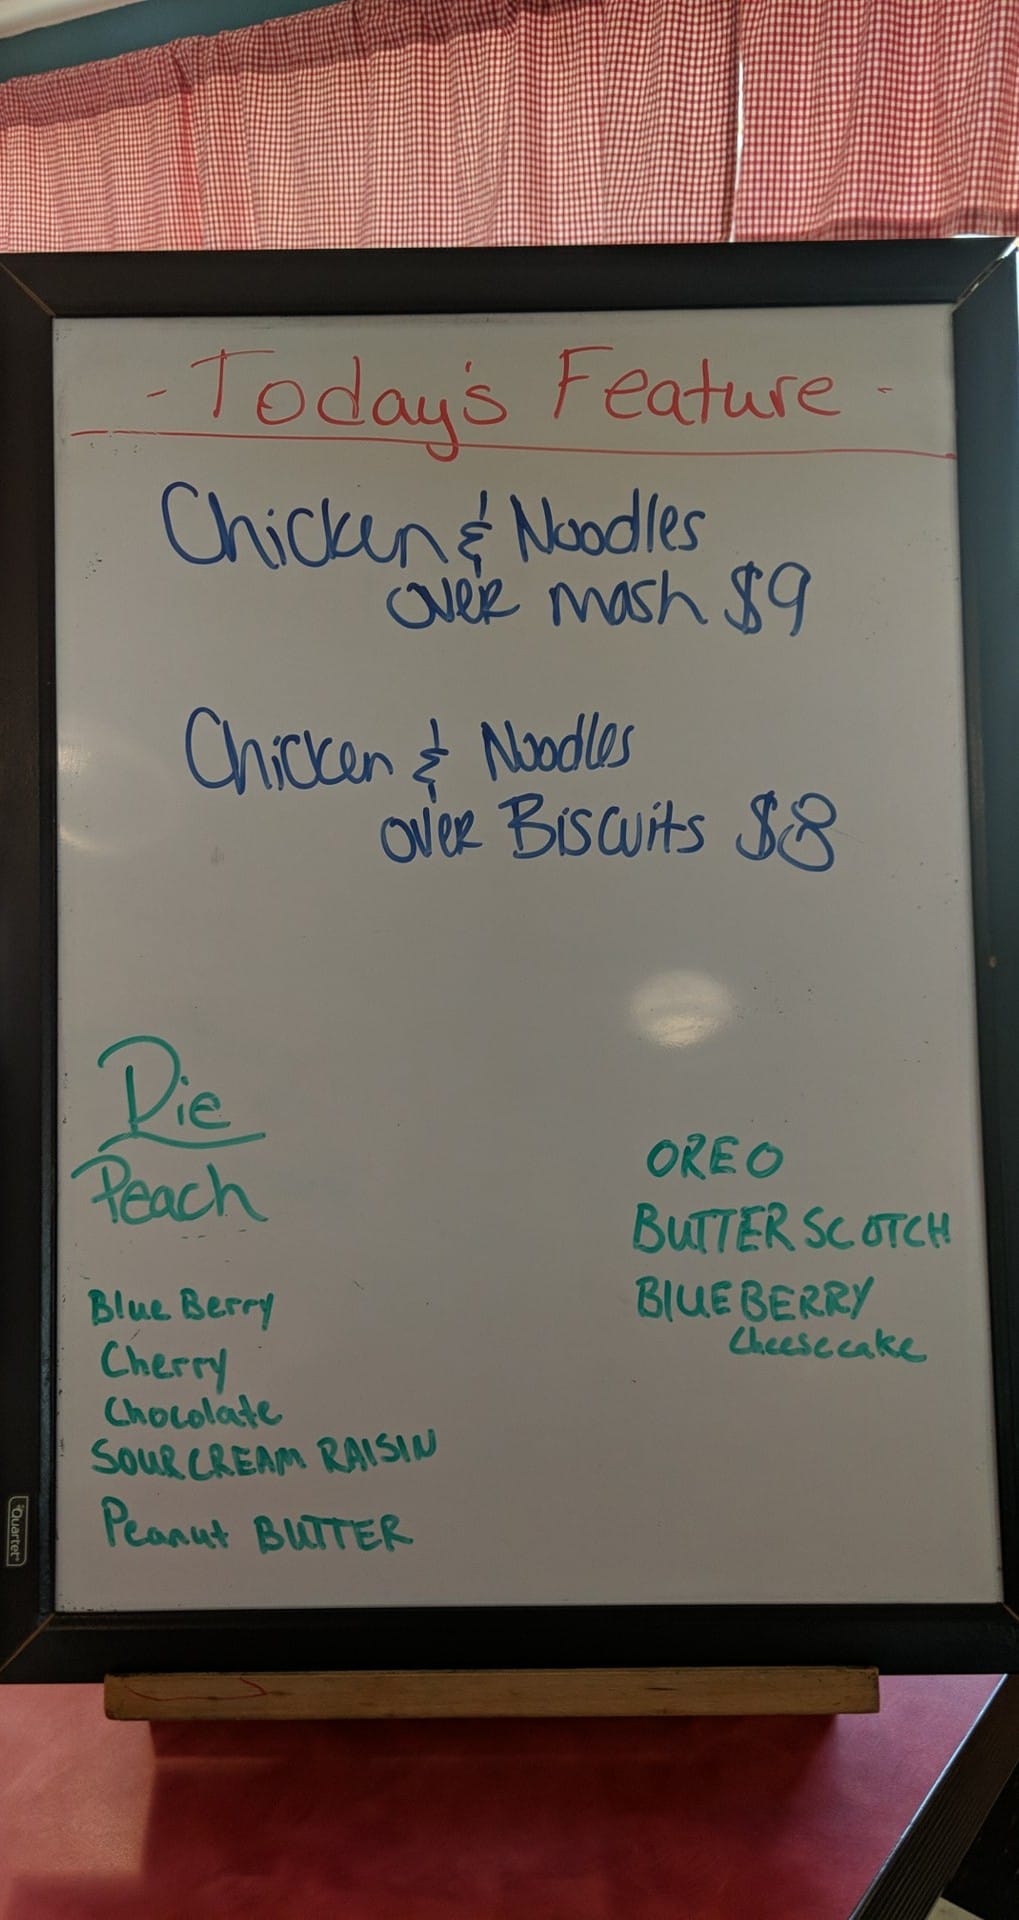 - Today's Feature -
Chicken & Noodles
over mash $9
Chicken & Noodles
over Biscuits $8
Pie
Peach
Blue Berry
Cherry
Chocolate
SOUR CREAM RAISIN
Peanut BUTTER
OREO
BUTTERSCOTCH
BLUEBERRY
Cheesecake
Quartet